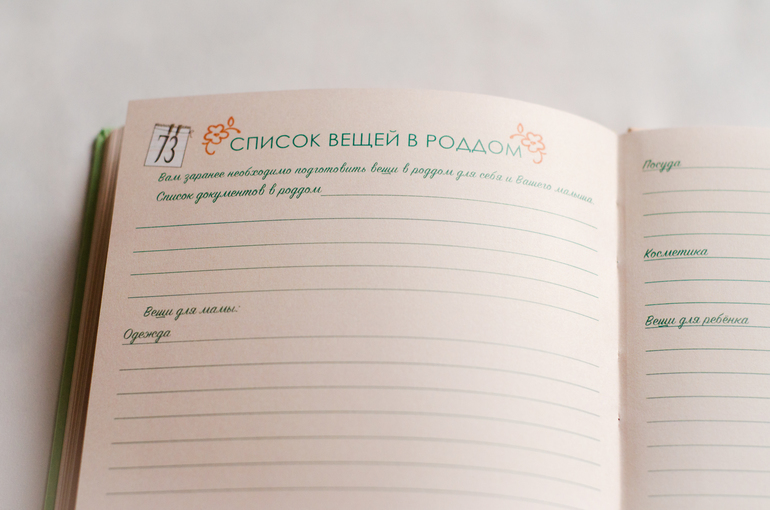 73
СПИСОК ВЕЩЕЙ В РОДДОМ
Вам заранее необходимо подготовить вещи в роддом для себя и Вашего малыша.
Список документов в роддом
Вещи для мамы:
Одежда
Посуда
Косметика
Вещи для ребёнка